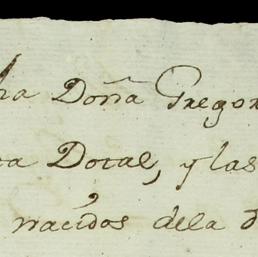 ha Doña Gregor
ca Dotal, y las
nacidos dela d